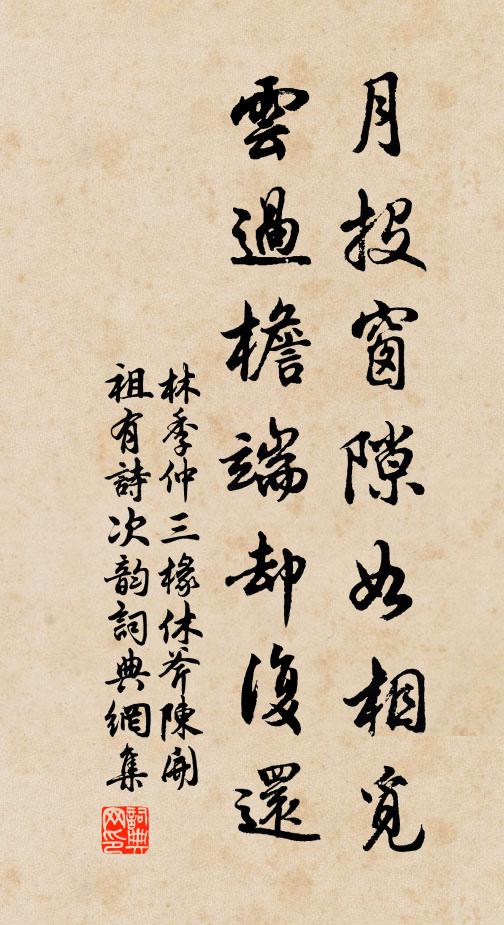 月投窗隙如相覓
雲過檐端却復還
林季仲三椽休斧陳開
祖有詩次韵詞典網集
詞典网印